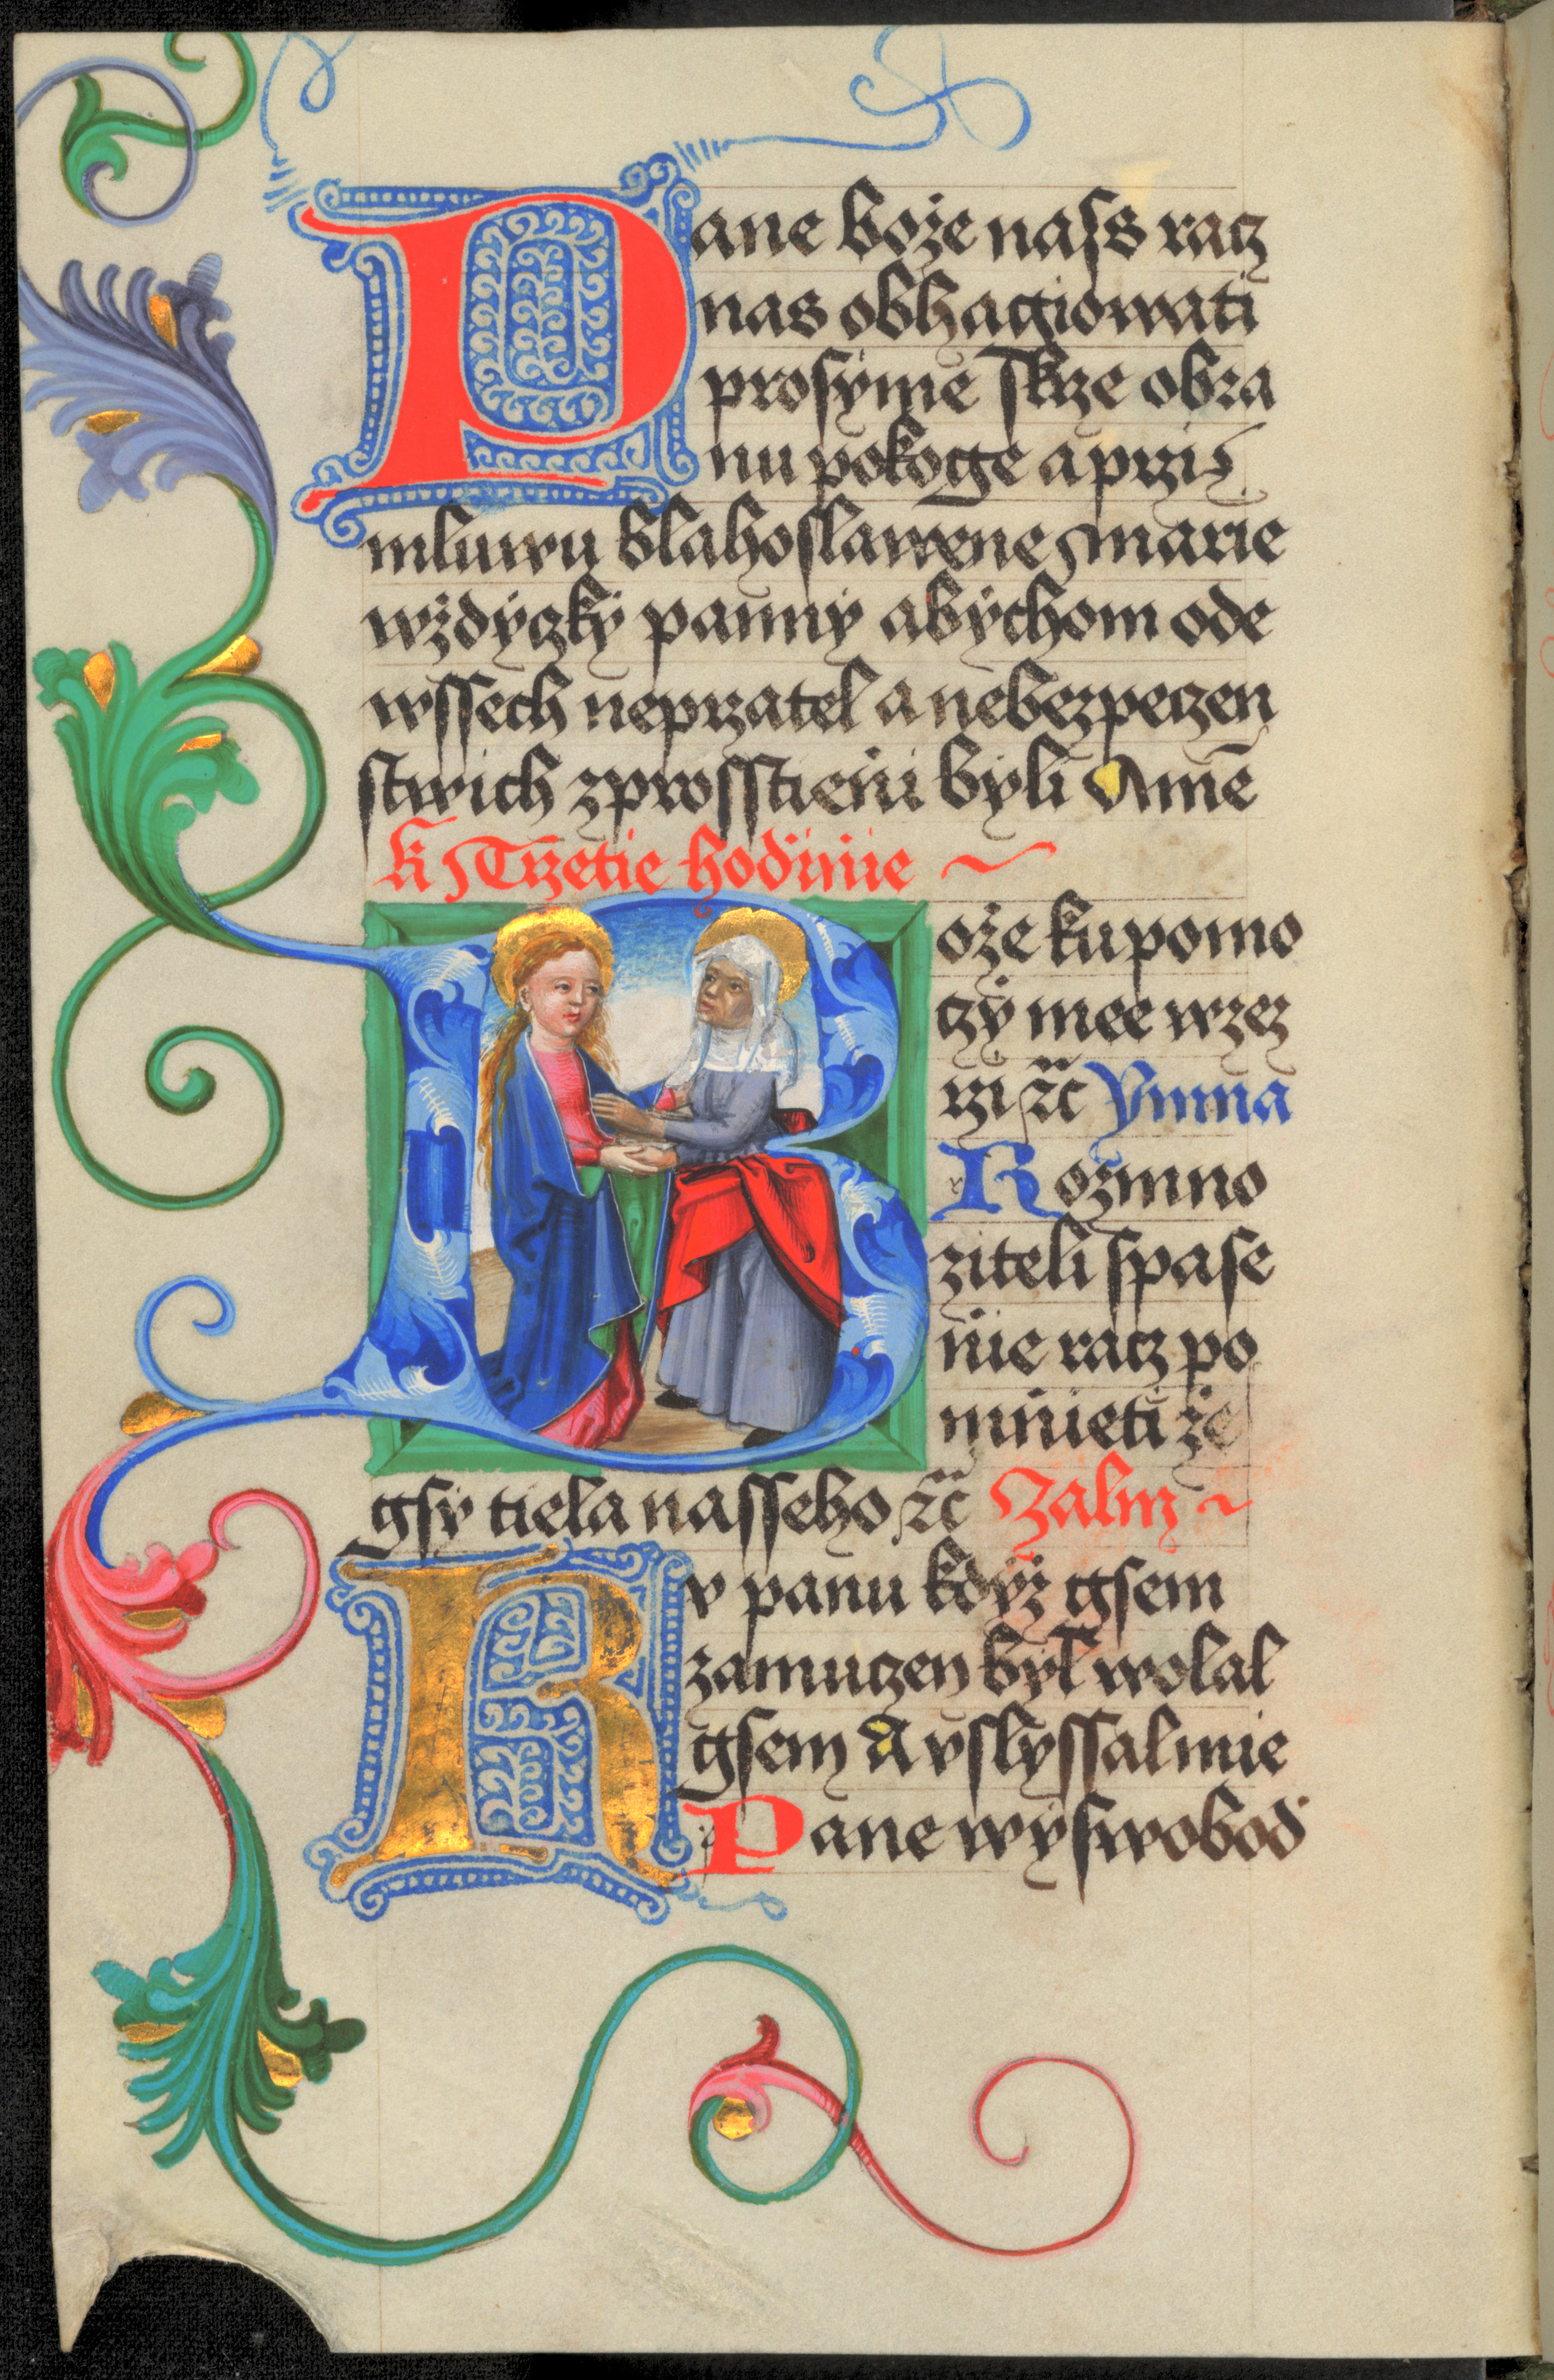 Pane boże nass racz
nas obhagiowati
prosyme skrze obra
nu pokoge a przi
mluwu blahoslawene marie
wżdyczky panny abychom ode
wssech neprzatel a nebezpeczen
stwich zprosstieni byli Amē
k Trzetie hodinie ~
Boże ku pomo
czy mee wzez
rzi ꝛc̃ Ymna
Rozmno
ziteli spase
nie racz po
mnieti że
gsy tiela nasseho ꝛc̃ Zalm ~
Kv panu kdyż gsem
zamuczen byl wolal
gsem A vslyssal mie
Pane wyswobod